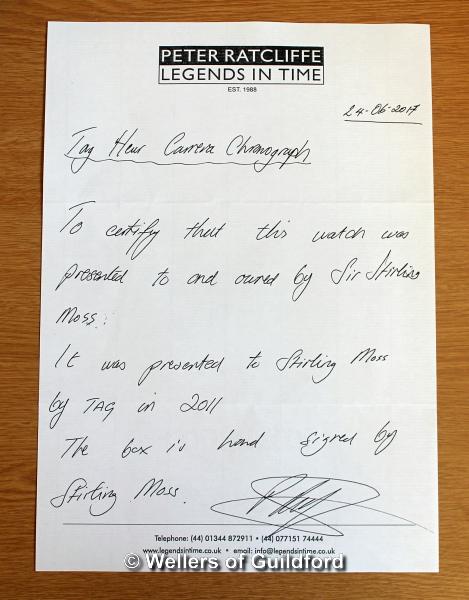 PETER RATCLIFFE
LEGENDS IN TIME
EST. 1988
24-06-2017
Tag Heur Carrera Chronograph
To certify that this watch was
presented to and owned by Sir Stirling
Moss.
It was presented to Stirling Moss
by TAG in 2011
The box is hand signed by
Stirling Moss.
Telephone: (44) 01344 872911 • (44) 077151 74444
www.legendsintime.co.uk • email: info@legendsintime.co.uk
© Wellers of Guildford